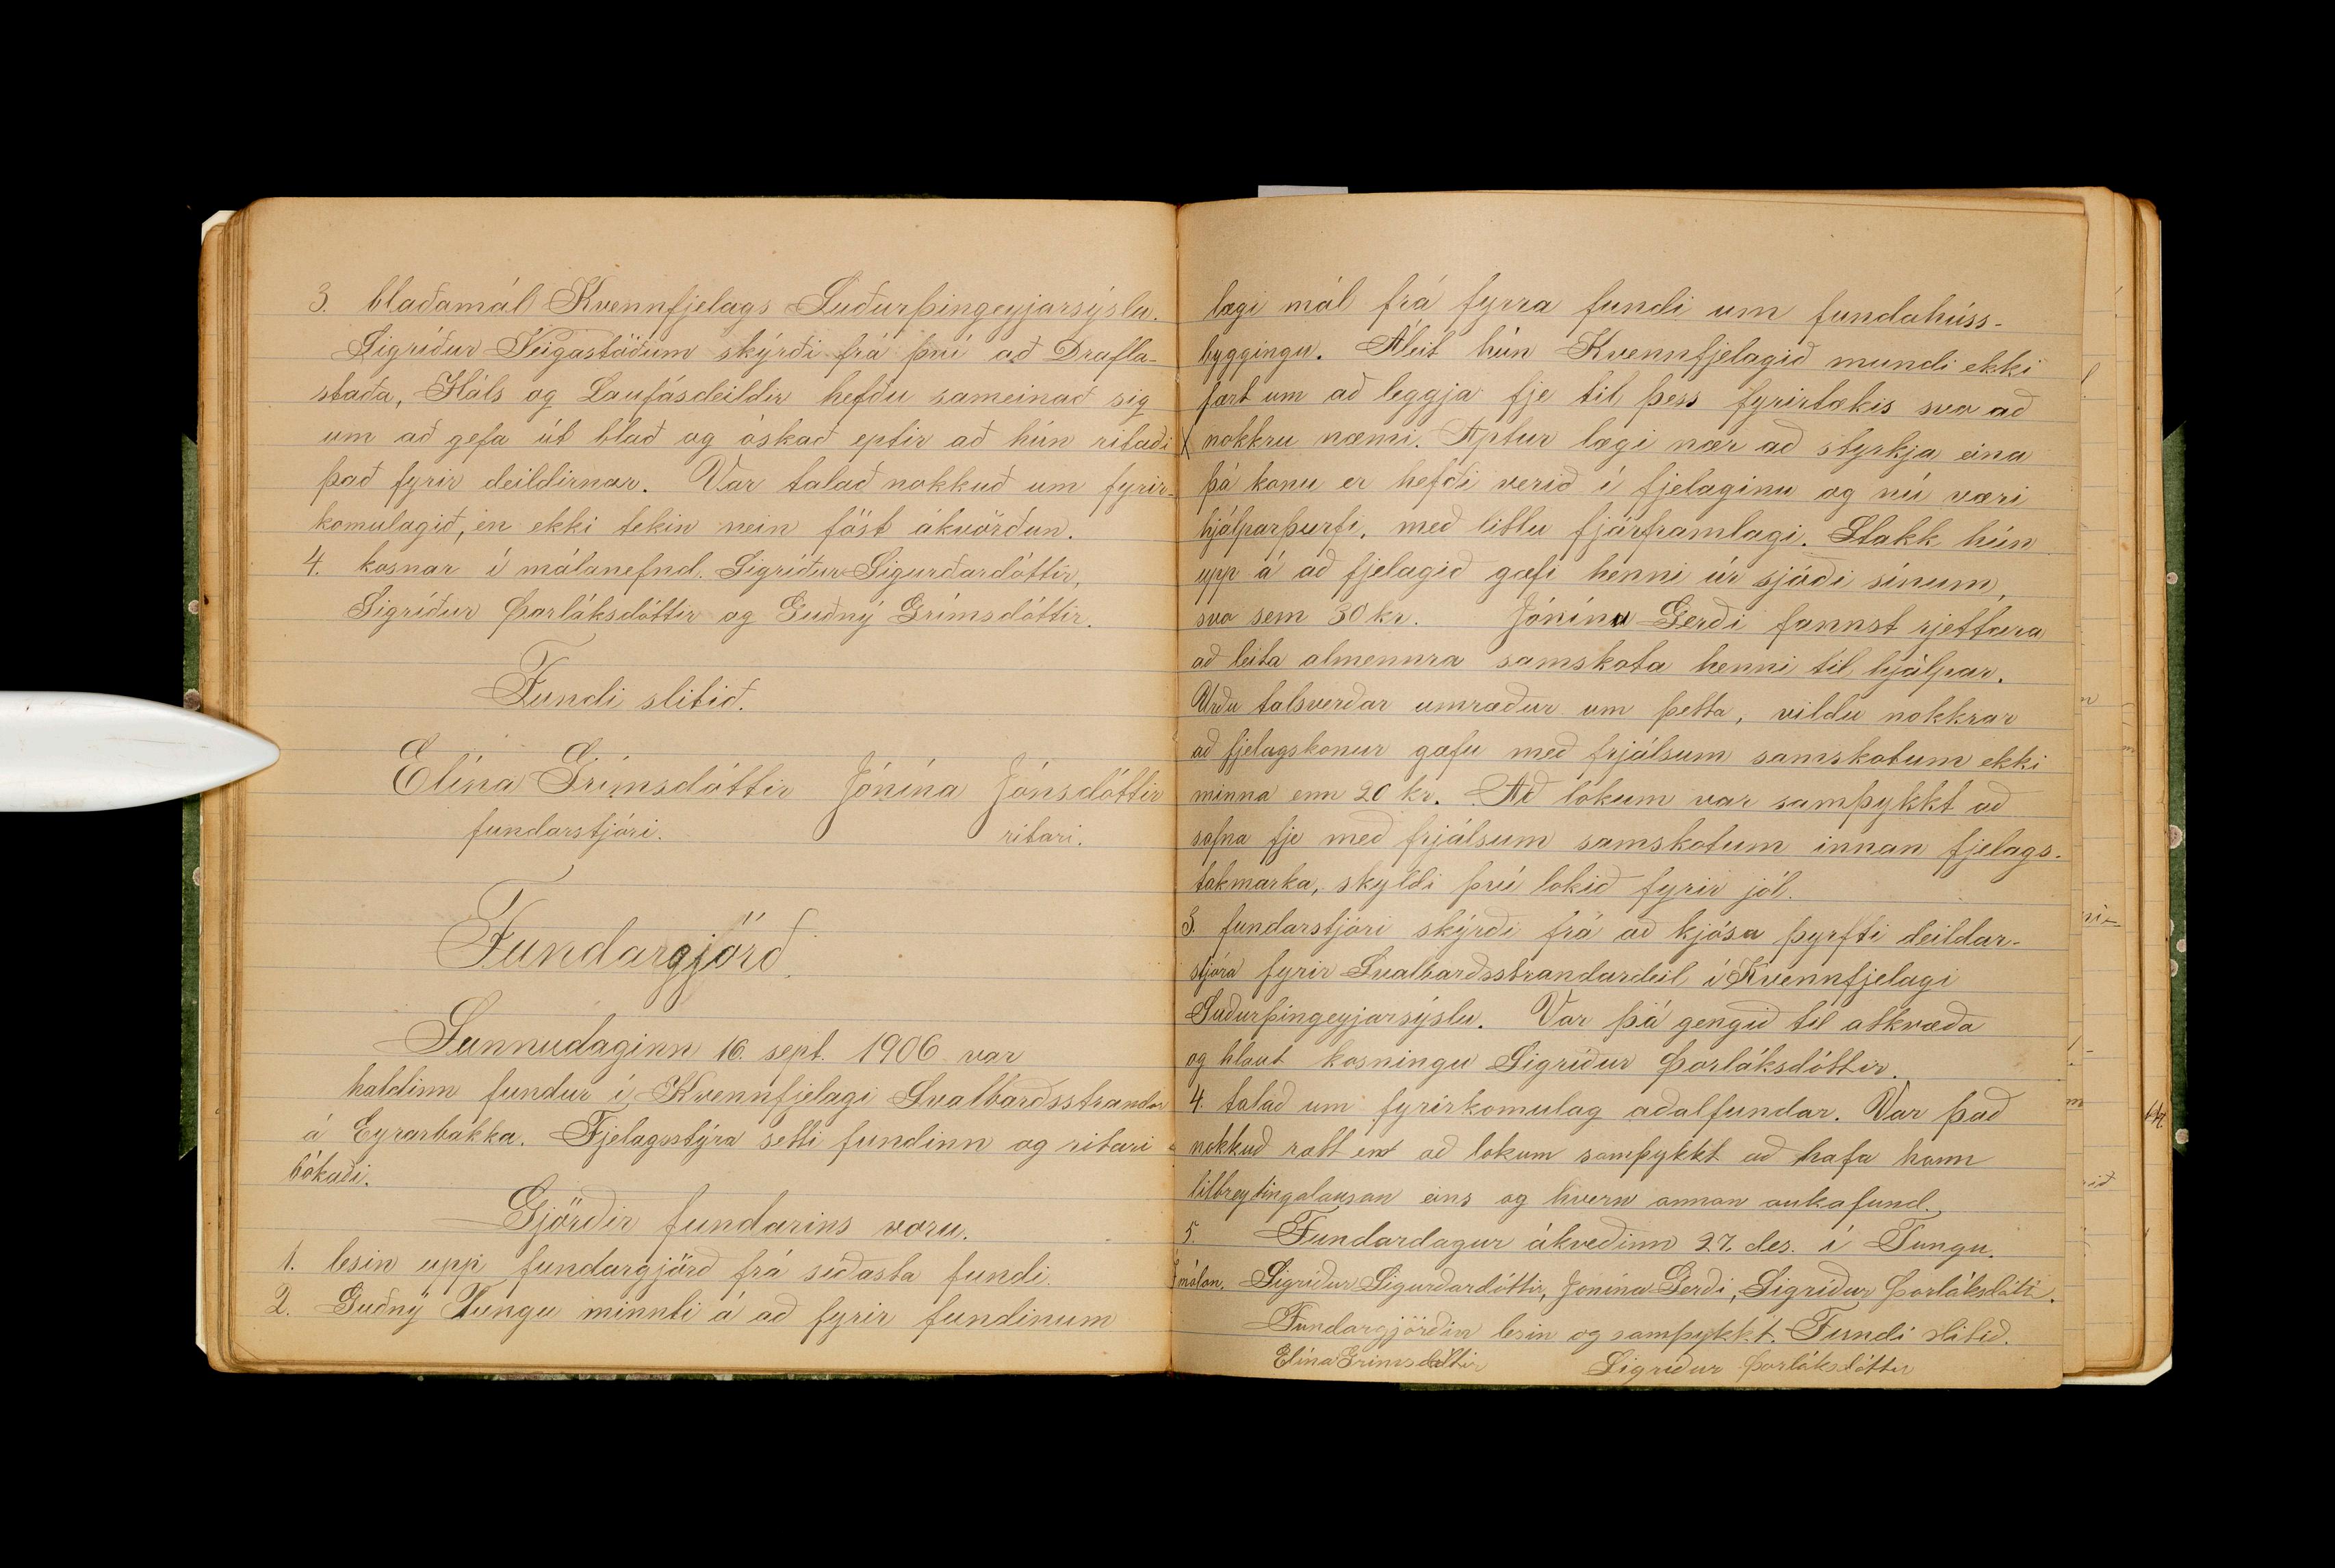 3. blaðamál Kvennfjelags Suðurþingeyjarsýslu.
Sigríður Veigastöðum skýrði frá því að Drafla-
staða, Háls og Laufásdeildir hefðu sameinað sig
um að gefa út blað og óskað eptir að hún ritaði
það fyrir deildirnar. Var talað nokkuð um fyrir-
komulagið, en ekki tekin nein föst ákvörðun.
4. kosnar í málanefnd. Sigríður Sigurðardóttir,
Sigríður Þorláksdóttir og Guðný Grímsdóttir.
Fundi slitið.
Elína Grímsdóttir Jónína Jónsdóttir
fundarstjóri. ritari.
Fundargjörð.
Sunnudaginn 16. sept. 1906 var
haldinn fundur í Kvennfjelagi Svalbarðsstrandar
á Eyrarbakka. Fjelagsstýra setti fundinn og ritari
bókaði.
Gjörðir fundarins voru.
1. lesin upp fundargjörð frá síðasta fundi.
2. Guðný Tungu minnti á að fyrir fundinum
lægi mál frá fyrra fundi um fundahúss-
byggingu. Áleit hún Kvennfjelagið mundi ekki
fært um að leggja fje til þess fyrirtækis svo að
nokkru næmi. Aptur lægi nær að styrkja eina
þá konu er hefði verið í fjelaginu og nú væri
hjálparþurfi, með littlu fjárframlagi. Stakk hún
upp á að fjelagið gæfi henni úr sjóði sínum,
svo sem 30 kr. Jónínu Gerði fannst rjettara
að leita almennra samskota henni til hjálpar.
Urðu talsverðar umræður um þetta, vildu nokkrar
að fjelagskonur gæfu með frjálsum samskotum ekki
minna enn 20 kr. Að lokum var samþykkt að
safna fje með frjálsum samskotum innan fjelags-
takmarka, skyldi því lokið fyrir jól.
3. fundarstjóri skýrði frá að kjósa þyrfti deildar-
stjóra fyrir Svalbarðsstrandardeil í Kvennfjelagi
Suðurþingeyjarsýslu. Var þá gengið til atkvæða
og hlaut kosningu Sigríður Þorláksdóttir.
4. talað um fyrirkomulag aðalfundar. Var það
nokkuð rætt en að lokum samþykkt að hafa hann
tilbreytingalausan eins og hvern annan aukafund.
5. Fundardagur ákveðinn 27. des. í Tungu.
Í málan. Sigríður Sigurðardóttir, Jónína Gerði, Sigríður Þorláksdótt.
Fundargjörðin lesin og samþykkt. Fundi slitið.
Elína Grímsdóttir Sigríður Þorláksdóttir